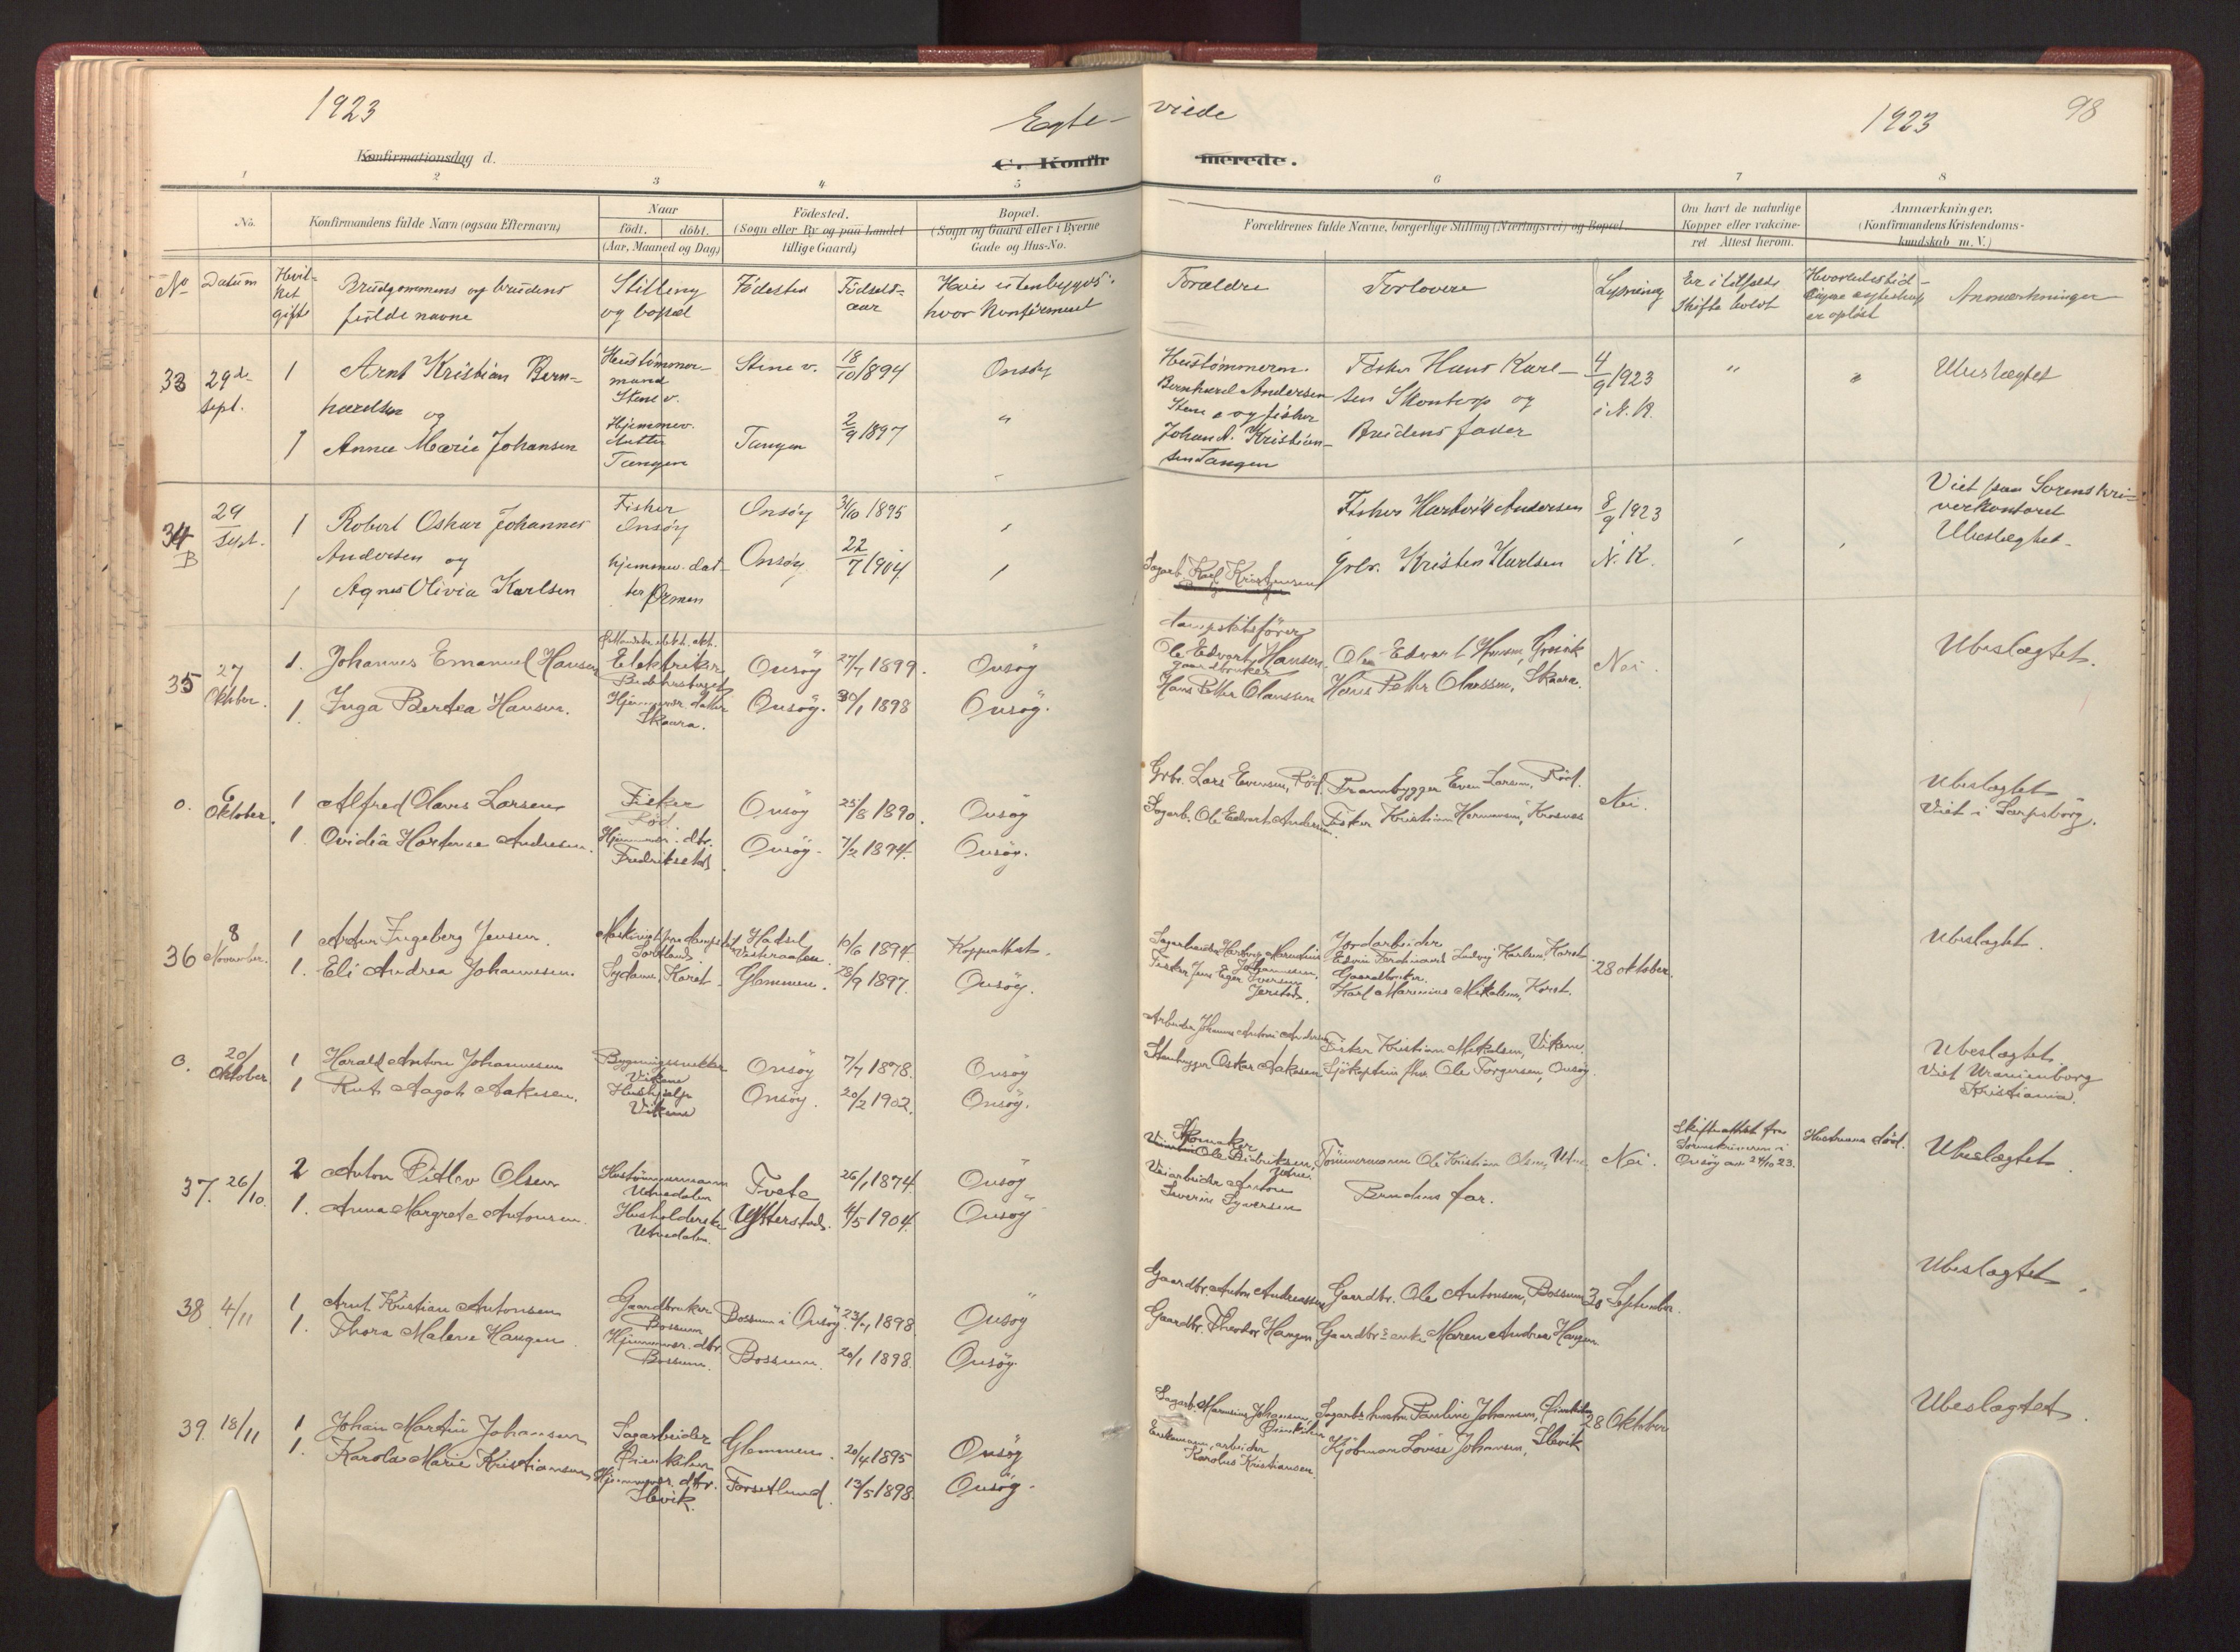 1923
Egte-
viede
1923
98
Konfirmationsdag d.
C. Konfir
merede.
1 2 3 4 5 6 7 8
No. Konfirmandens fulde Navn (ogsaa Efternavn) Naar født. döbt. (Aar, Maaned og Dag) Födested. (Sogn eller By og paa Landet tillige Gaard) Bopæl. (Sogn og Gaard eller i Byerne Gade og Hus-No.
Forældrenes fulde Navne, borgerlige Stilling (Næringsvei) og Bopæl. Om havt de naturlige Kopper eller vakcineret Attest herom. Anmærkninger. (Konfirmandens Kristendomskundskab m. V.)
No Datum Hvilket gifte Brudgommens og brudens fulde navne Stilling og bopæl Födested Födselsaar Hvis utenbygds: hvor konfirmert
Forældre Forlovere Lysning Er i tilfælde Skifte holdt Anmærkninger
33 29de sept. 1 Arnt Kristian Bern-
hardsen og
1 Anna Marie Johansen
Hustömmer-
mand
Stene v.
Hjemmev.
datter
Tangen
Stene v. 18/10 1894 Onsöy
Tangen 2/9 1897 "
Hustömmerm.
Bernhard Andersen
Stene v og fisker
Johan A. Kristian-
sen Tangen
Fisker Hans Karl-
sen Skontorp og
Brudens fader
4/9 1923
i N. K.
" "
Ubeslægtet
34 B 29 sept. 1 Robert Oskar Johannes
Andersen og
1 Agnes Olivia Karlsen
Fisker
Onsöy
hjemmev. dat-
ter Ørmen
Onsöy 31/10 1895
Onsöy 22/7 1904
Sagarb. Karl Kristensen
Fisker Hartvik Andersen
Grbr. Kristen Karlsen
8/9 1923
N. K.
Viet paa Sorenskri-
verkontoret
Ubeslægtet
35 27 Oktober. 1. Johannes Emanuel Hansen
1. Inga Bertea Hansen.
Elektriker
Hjemmevær. datter
Skaara.
Onsöy 27/7 1899. Onsöy
Onsöy. 30/1 1898 Onsöy.
Ole Edvart Hansen.
gaardbruker
Hans Petter Olaussen
Ole Edvart Hansen, Gressvik
Hans Petter Olaussen, Skaara.
Nei.
Ubeslægtet.
0. 6 Oktober. 1 Alfred Olaves Larsen
1. Ovidia Hortense Andresen.
Fisker
Röd
Hjemmevær. dtr.
Fredrikstad.
Onsöy 25/8 1890. Onsöy
Onsöy. 7/2 1894. Onsöy.
Grbr. Lars Evensen, Röd.
Sagarb. Ole Edvart Andersen.
Prambygger Even Larsen, Röd.
Fisker Kristian Hermansen, Krosnes
Nei.
Ubeslægtet
Viet i Sarpsborg.
36 8 November. 1 Artur Ingeberg Jensen.
1. Eli Andrea Johannesen.
Sortland
Sydame, Karst.
Hadsel
Vesteraalen. 10/6 1894. Koppattest.
Glemmen. 28/9 1897. Onsöy.
Fisker Jens Eger Iversen
Jerstad.
Jordarbeider
Edvin Ferdinand Ludvig Karlsen, Karst
Gaardbruker.
Karl Marenius Mikalsen, Karst.
28 oktober.
Ubeslægtet.
0. 20/ Oktober 1 Harald Anton Johannesen
1 Rut Aagot Aakesen.
Bygningssnekker
Vikane
Hushjelp
Vikane
Onsöy 7/7 1878. Onsöy
Onsöy. 20/2 1902. Onsöy.
Arbeider Johannes Anton Andersen
Stenhugger Oskar Aakesen
Fisker Kristian Mikalsen, Viken.
Sjökaptein fhv Ole Torgersen, Onsöy.
Ubeslægtet.
Viet Uranienborg
Kristiania.
37. 26/10. 2 Anton Ditlev Olsen
1. Anna Margrete Antonsen.
Hustömmermann
Utnedalen
Husholderske
Utnedalen.
Tvete 26/1 1874. Onsöy
Ytterstad. 4/5 1904. Onsöy
Skomaker
Ole Diedriksen,
Veiarbeider Anton
Severin Syversen
Tömmermann Ole Kristian Olsen, Utne
Brudens far.
Nei.
Skifteattest fra
Sorenskriveren i
Onsöy av 24/10 23.
Hustruens död.
Ubeslægtet.
38 4/11 1 Arnt Kristian Antonsen
1. Thora Malene Haugen.
Gaardbruker
Bossum
Hjemmevær. dtr
Bossum.
Bossum i Onsöy. 23/7 1898. Onsöy
Bossum. 20/1 1898. Onsöy.
Gaardbr. Anton Andreassen
Gaardbr. Theodor Haugen,
Gaardbr. Ole Antonsen, Bossum
Gaardbr's enke Maren Andrea Haugen.
30 September.
Ubeslægtet.
39. 18/11 1 Johan Martin Johansen
1. Karola Marie Kristiansen
Sagarbeider
Øienkilen
Hjemmevær. dtr.
Slevik.
Glemmen. 20/4 1895 Onsöy
Torsetlund. 13/5 1898. Onsöy.
Sagarb. Marenius Johansen,
Øienkilen
arbeider
Karolus Kristiansen.
Sagarbs hustru Pauline Johansen, Øienkilen
Kjöbman Lovise Johansen, Slevik
28 Oktober
Ubeslægtet.